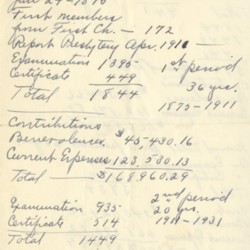 Jan 24-1875
First members
from First Ch. — 172
Report Presbytery Apr. 1911 -
Examination 1395- 1st period
Certificate 449 36 yrs.
Total 1844 1875-1911
Contributions
Benevolences. $45,430.16
Current Expenses 123,530.13
Total — $168,960.29
Examination 935- 2nd period
Certificate 514 20 yrs. 1911-1931
Total 1449